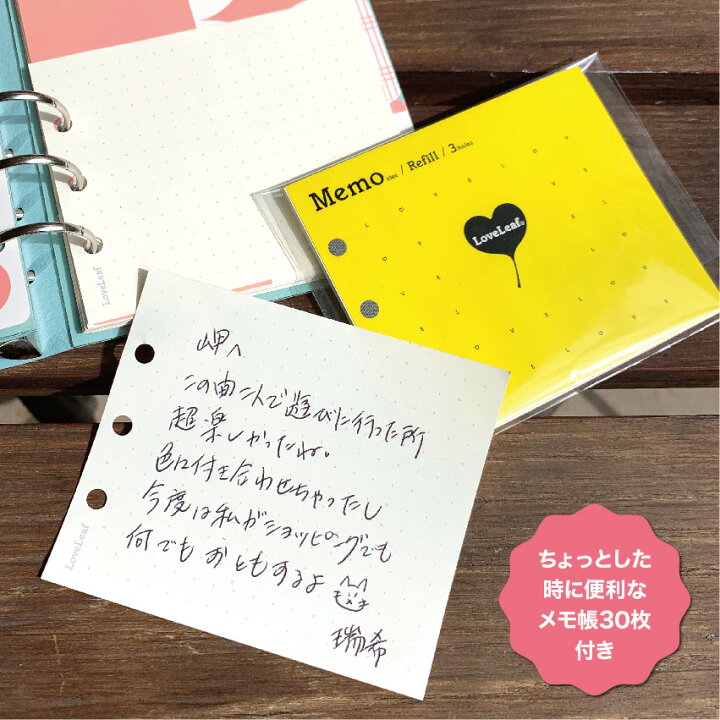 Memo size / Refill / 3 holes
LOVELOV
LoveLeaf
LoveLeaf
岬へ
この前二人で遊びに行った所
超楽しかったね。
色々付き合わせちゃったし
今度は私がショッピングでも
何でもおともするよ
瑞希
LoveLeaf
ちょっとした
時に便利な
メモ帳30枚
付き